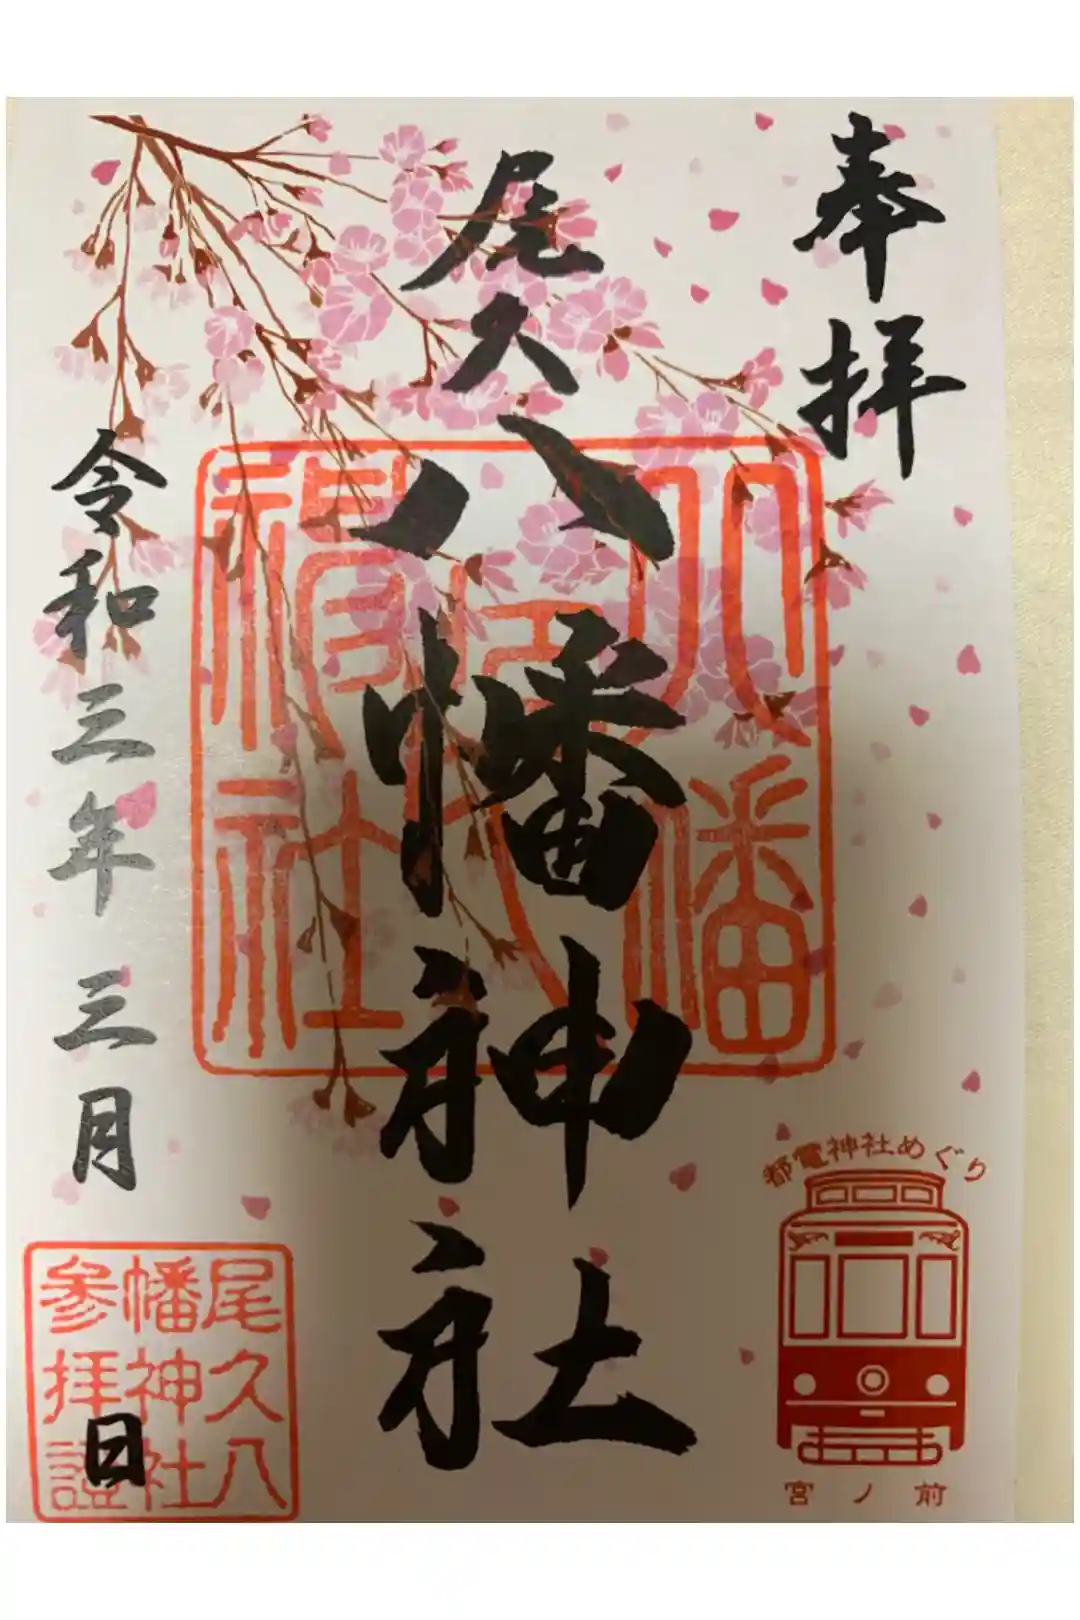 奉拝
尾久八幡神社
令和三年三月 日
八幡
神社
都電神社めぐり
宮ノ前
尾久八
幡神社
参拝證